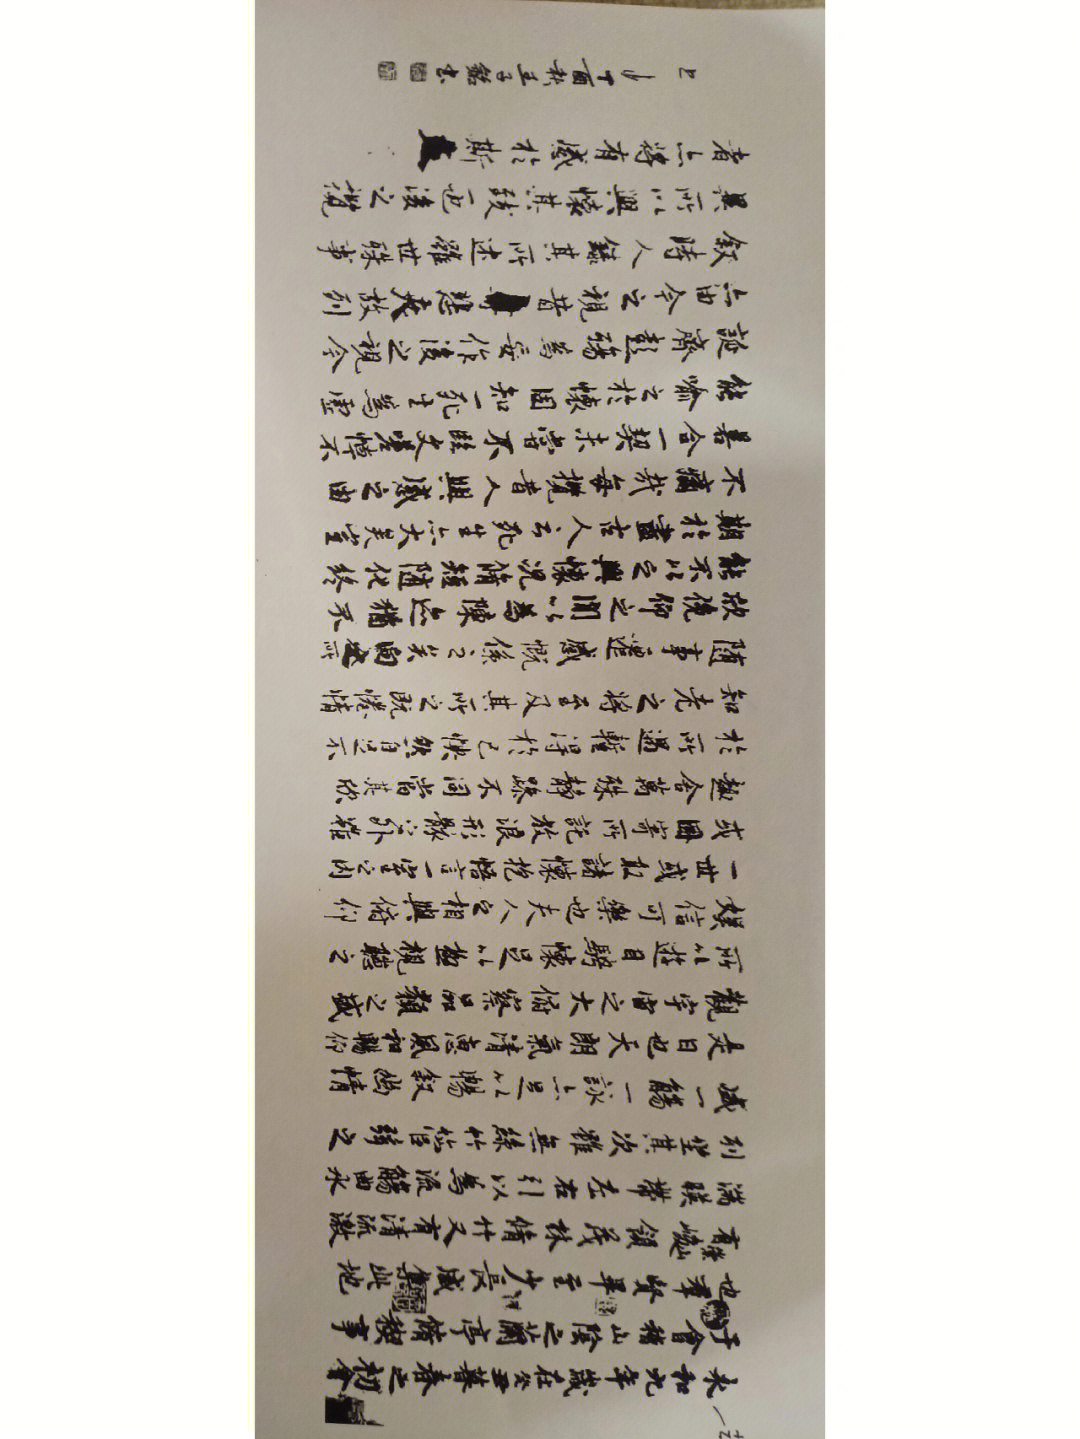 永和九年歲在癸丑暮春之初會
于會稽山陰之蘭亭脩稧事
也群賢畢至少長咸集此地
有崇山峻領茂林脩竹又有清流激
湍暎帶左右引以為流觴曲水
列坐其次雖無絲竹管弦之
盛一觴一詠亦足以暢敘幽情
是日也天朗氣清惠風和暢仰
觀宇宙之大俯察品類之盛
所以遊目騁懷足以極視聽之
娛信可樂也夫人之相與俯仰
一世或取諸懷抱悟言一室之內
或因寄所託放浪形骸之外雖
趣舍萬殊靜躁不同當其欣
於所遇暫得於己快然自足不
知老之將至及其所之既惓情
隨事遷感慨係之矣向之所
欣俛仰之閒以為陳迹猶不
能不以之興懷況脩短隨化終
期於盡古人云死生亦大矣豈
不痛哉每攬昔人興感之由
若合一契未嘗不臨文嗟悼不
能喻之於懷固知一死生為虛
誕齊彭殤為妄作後之視今
亦由今之視昔悲夫故列
敘時人錄其所述雖世殊事
異所以興懷其致一也後之攬
者亦將有感於斯
丁酉秋王子銘書